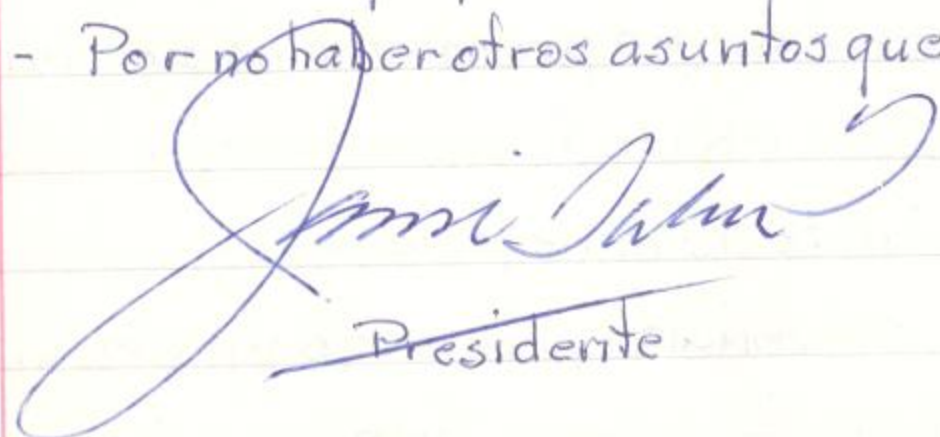 - Por no haber otros asuntos que
Presidente